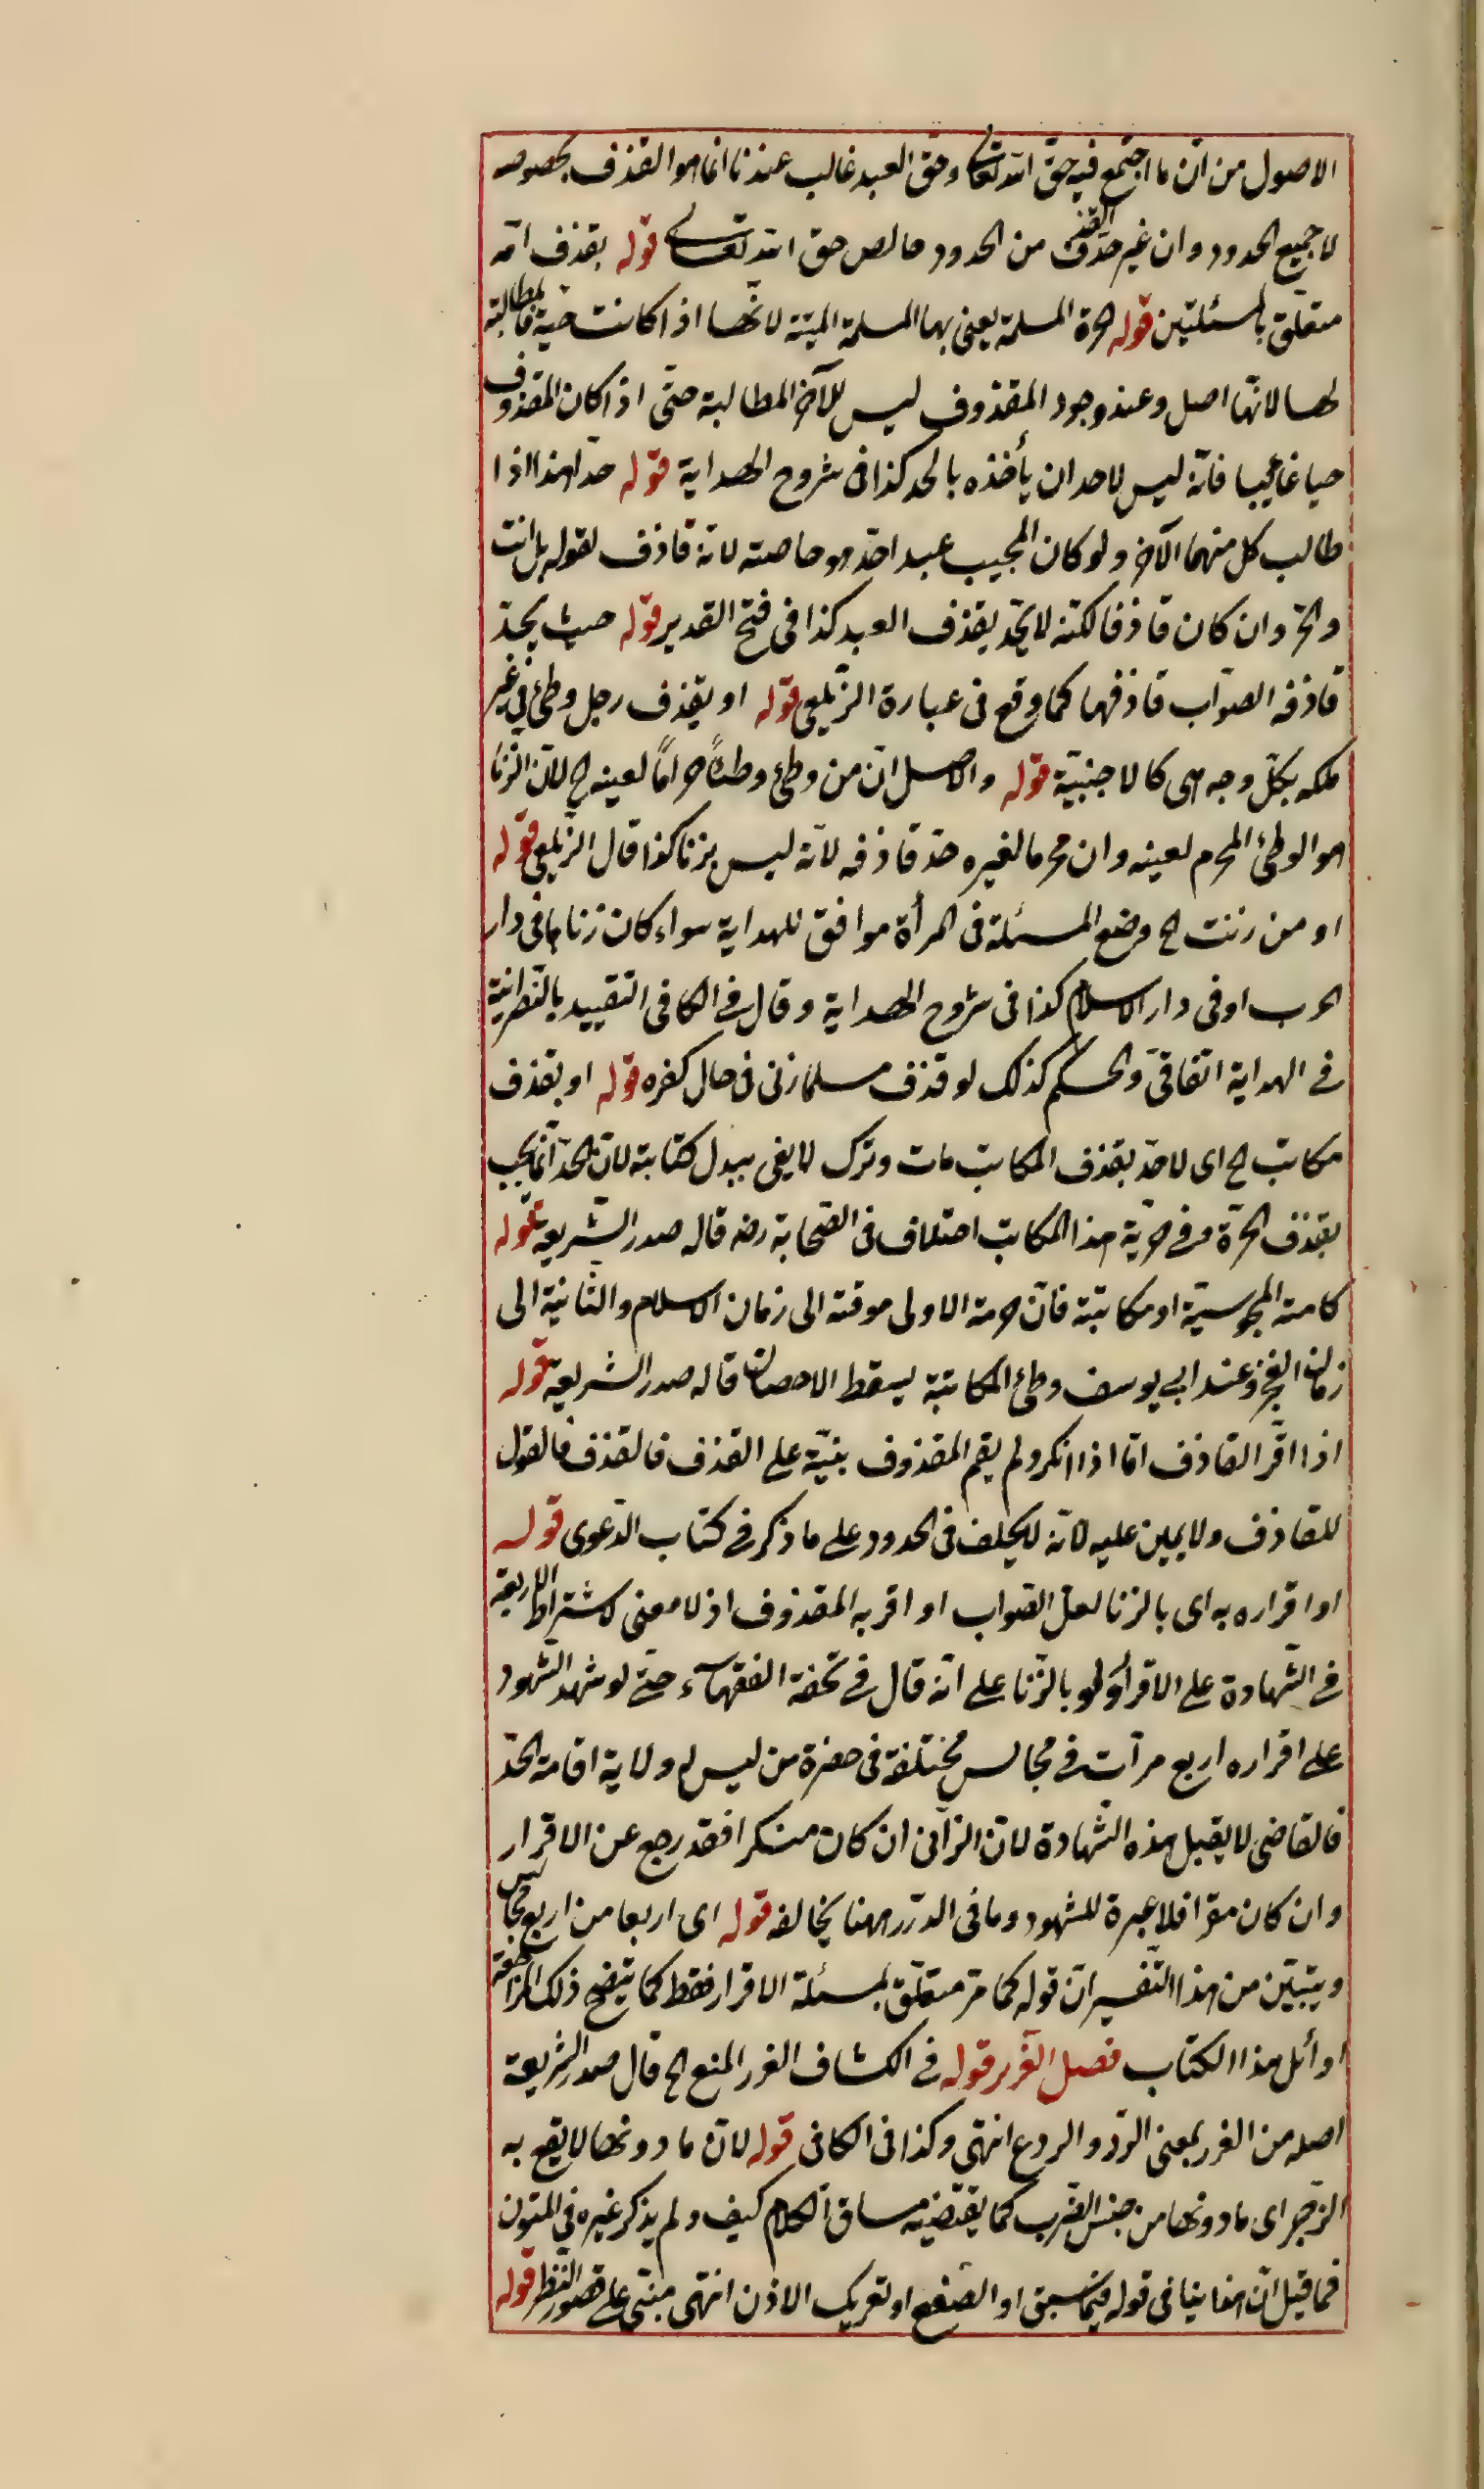 الاصول من ان ما اجتمع فيه حق الله تعالى وحق العبد غالب عندنا انما هو القذف بخصوصه
لا جميع الحدود وان غير حد القذف من الحدود خالص حق الله تعالى قوله بقذف امه
متعلق بالمسئلتين قوله الحرة المسلمة يعني بها المسلمة الميتة لانها اذا كانت حية فالمطالبة
لها لانها اصل وعند وجود المقذوف ليس للآخر المطالبة حتى اذا كان المقذوف
حيا غائبيا فانه ليس لاحد ان يأخذه بالحد كذا في شروح الهداية قوله حدا هذا اذا
طالب كل منهما الآخر ولو كان المجيب عبدا حد هو خاصته لانه قاذف لقوله بل انت
والحر وان كان قاذفا لكنه لا يحد بقذف العبد كذا في فتح القدير قوله حيث يحد
قاذفه الصواب قاذفها كما وقع في عبارة الزيلعي قوله او بقذف رجل وطئ في غير
ملكه بكل وجه هى كالاجنبية قوله والاصل ان من وطئ وطئا حراما لعينه الخ لان الزنا
هو الوطئ المحرم لعينه وان محرما لغيره حد قاذفه لانه ليس بزنا كذا قال الزيلعي قوله
او من زنت الخ وضع المسئلة في المرأة موافق للهداية سواء كان زناها في دار
الحرب او في دار الاسلام كذا في شروح الهداية وقال في الكافي التقييد بالنصرانية
في الهداية اتفاقي والحكم كذلك لو قذف مسلما زنى في حال كفره قوله او بقذف
مكاتب الخ اى لا حد بقذف المكاتب مات وترك لا يفى ببدل كتابته لان الحد انما يجب
بقذف الحرة وفي حرية هذا المكاتب اختلاف في الصحابة رضه قاله صدر الشريعة قوله
كامته المجوسية او مكاتبته فان حرمة الاولى موقتة الى زمان الاسلام والثانية الى
زمان العجز وعند ابي يوسف وطئ المكاتبة يسقط الاحصان قاله صدر الشريعة قوله
اذا اقر القاذف اما اذا انكر ولم يقم المقذوف بنية على القذف فالقذف فالقول
للقاذف ولا يمين عليه لانه لا يحلف في الحدود على ما ذكر في كتاب الدعوى قوله
او اقراره به اى بالزنا لعل الصواب او اقر به المقذوف اذ لا معنى لاشتراط الاربعة
في الشهادة على الاقرار ولو بالزنا على انه قال في تحفة الفقهاء حتى لو شهد الشهود
على اقراره اربع مرات في مجالس مختلفة في حضرة من ليس له ولاية اقامة الحد
فالقاضى لا يقبل هذه الشهادة لان الزانى ان كان منكرا فقد رجع عن الاقرار
وان كان مقرا فلا عبرة للشهود وما في الدرر ههنا يخالفه قوله اى اربعا من اربع مجالس
ويتبين من هذا التفسير ان قوله كما مر متعلق بمسئلة الاقرار فقط كما يتضح ذلك المراجعة
اوائل هذا الكتاب فصل العزر قوله في الكشاف العزر المنع الخ قال صدر الشريعة
اصله من العزر بمعنى الرد والردع انتهى وكذا في الكافي قوله لان ما دونها لا يقع به
الزجر اى ما دونها من جنس الضرب كما يقتضيه مساق الكلام كيف ولم يذكر غيره في المتون
فما قيل ان هذا ينافي قوله فيما سبق او الصفع او تعريك الاذن انتهى مبنى على قصور النظر قوله